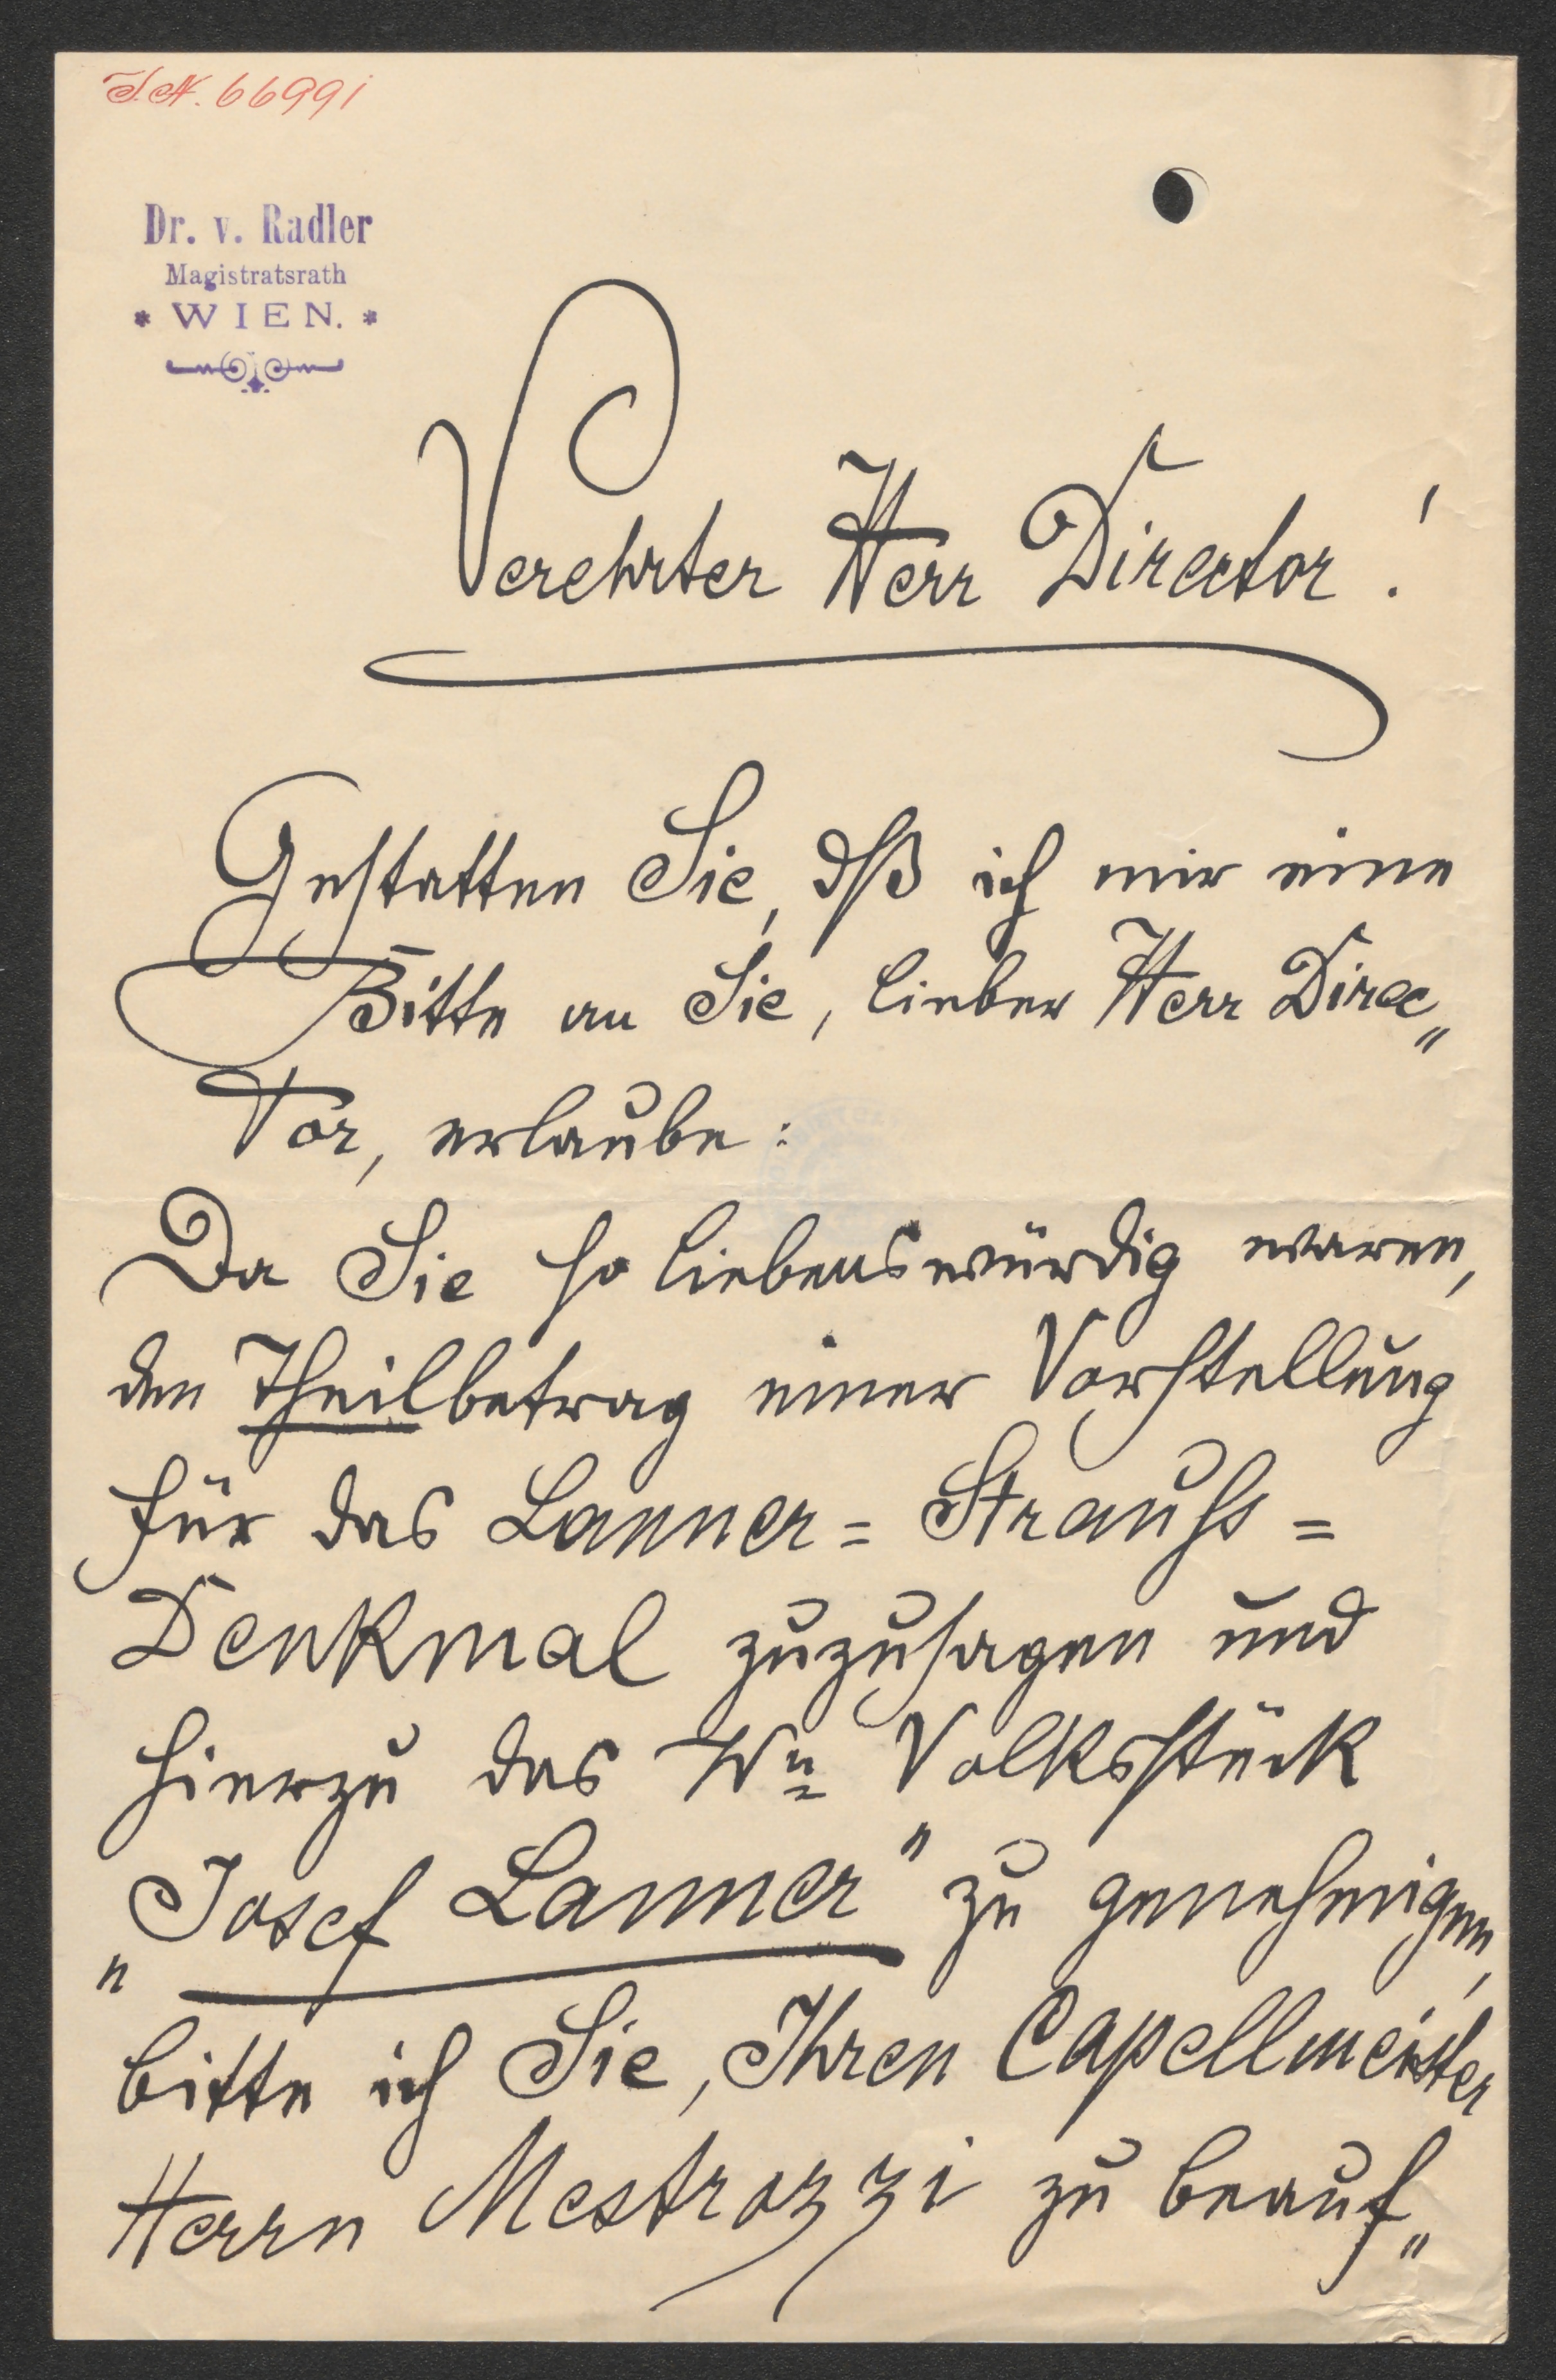 I.N. 66991
Dr. v. Radler
Magistratsrath
* WIEN. *
Verehrter Herr Director!
Gestatten Sie, dß ich mir eine
Bitte an Sie, lieber Herr Direc„
tor, erlaube:
Da Sie so liebenswürdig waren,
den Theilbetrag einer Vorstellung
für das Lanner= Strauss=
Denkmal zuzusagen und
hierzu das Wr Volksstück
„Josef Lanner" zu genehmigen,
bitte ich Sie, Ihren Capellmeister
Herrn Mestrozzi zu beauf„